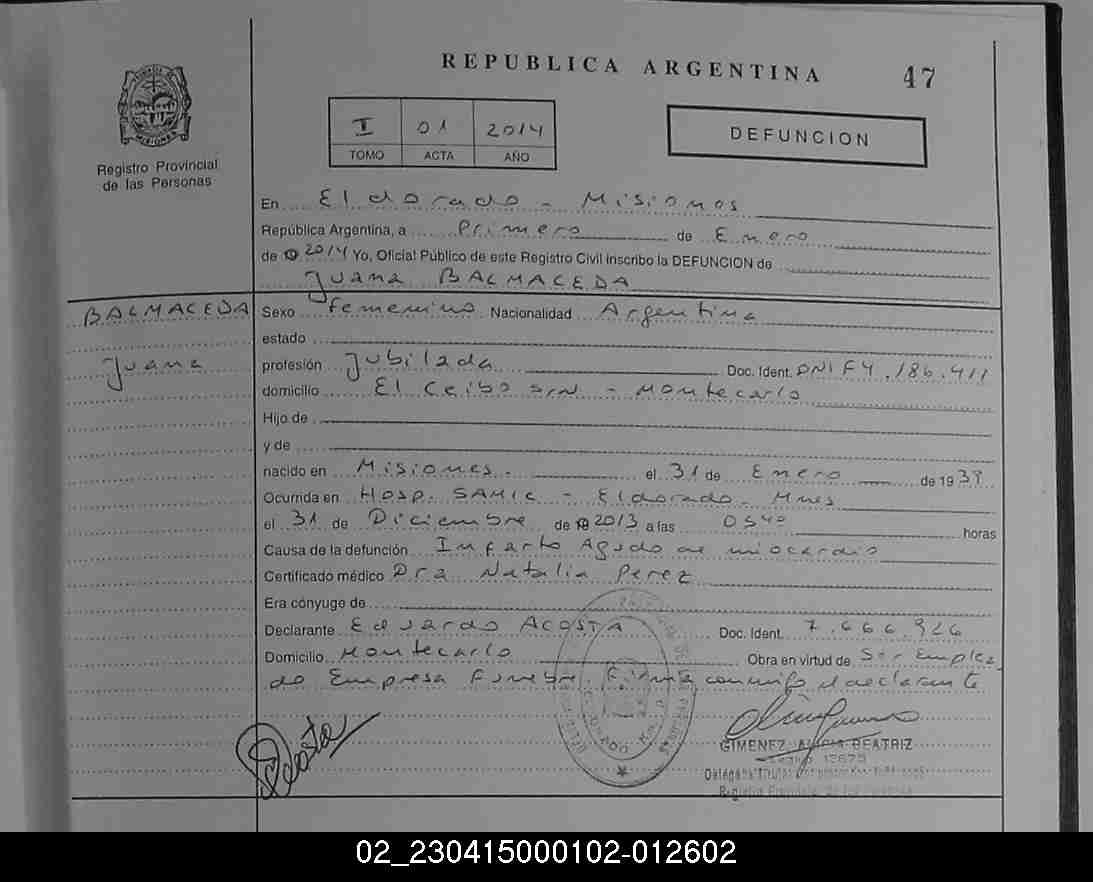 REPUBLICA ARGENTINA 47
I 01 2014
TOMO ACTA AÑO
DEFUNCION
Registro Provincial
de las Personas
En Eldorado - Misiones
República Argentina, a Primero de Enero
de 2014 Yo, Oficial Público de este Registro Civil inscribo la DEFUNCION de
Juana BALMACEDA
BALMACEDA
Juana
Sexo femenino Nacionalidad Argentina
estado
profesión Jubilada Doc. Ident. DNI F4.186.411
domicilio El Ceibo S/N - Montecarlo
Hijo de
y de
nacido en Misiones. el 31 de Enero de 19
Ocurrida en Hosp. SAMIC - Eldorado. Mnes
el 31 de Diciembre de 2013 a las 0540 horas
Causa de la defunción Infarto Agudo de miocardio
Certificado médico Dra Natalia Perez
Era cónyuge de
Declarante Eduardo ACOSTA Doc. Ident. 7.666.926
Domicilio Montecarlo Obra en virtud de Ser Emplea
do Empresa Funebre. Firma conmigo el declarante
Acosta
GIMENEZ, ALICIA BEATRIZ
02_230415000102-012602